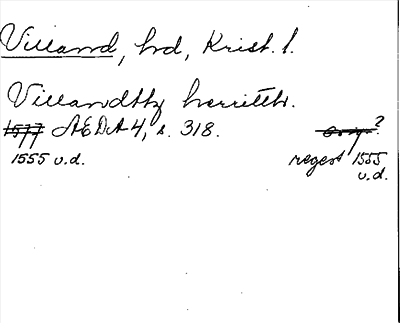 Villand, hd, Krist. l.
Villandthz herritth.
1577 ÆDA 4, s. 318. orig?
1555 u.d. regest 1555
u.d.